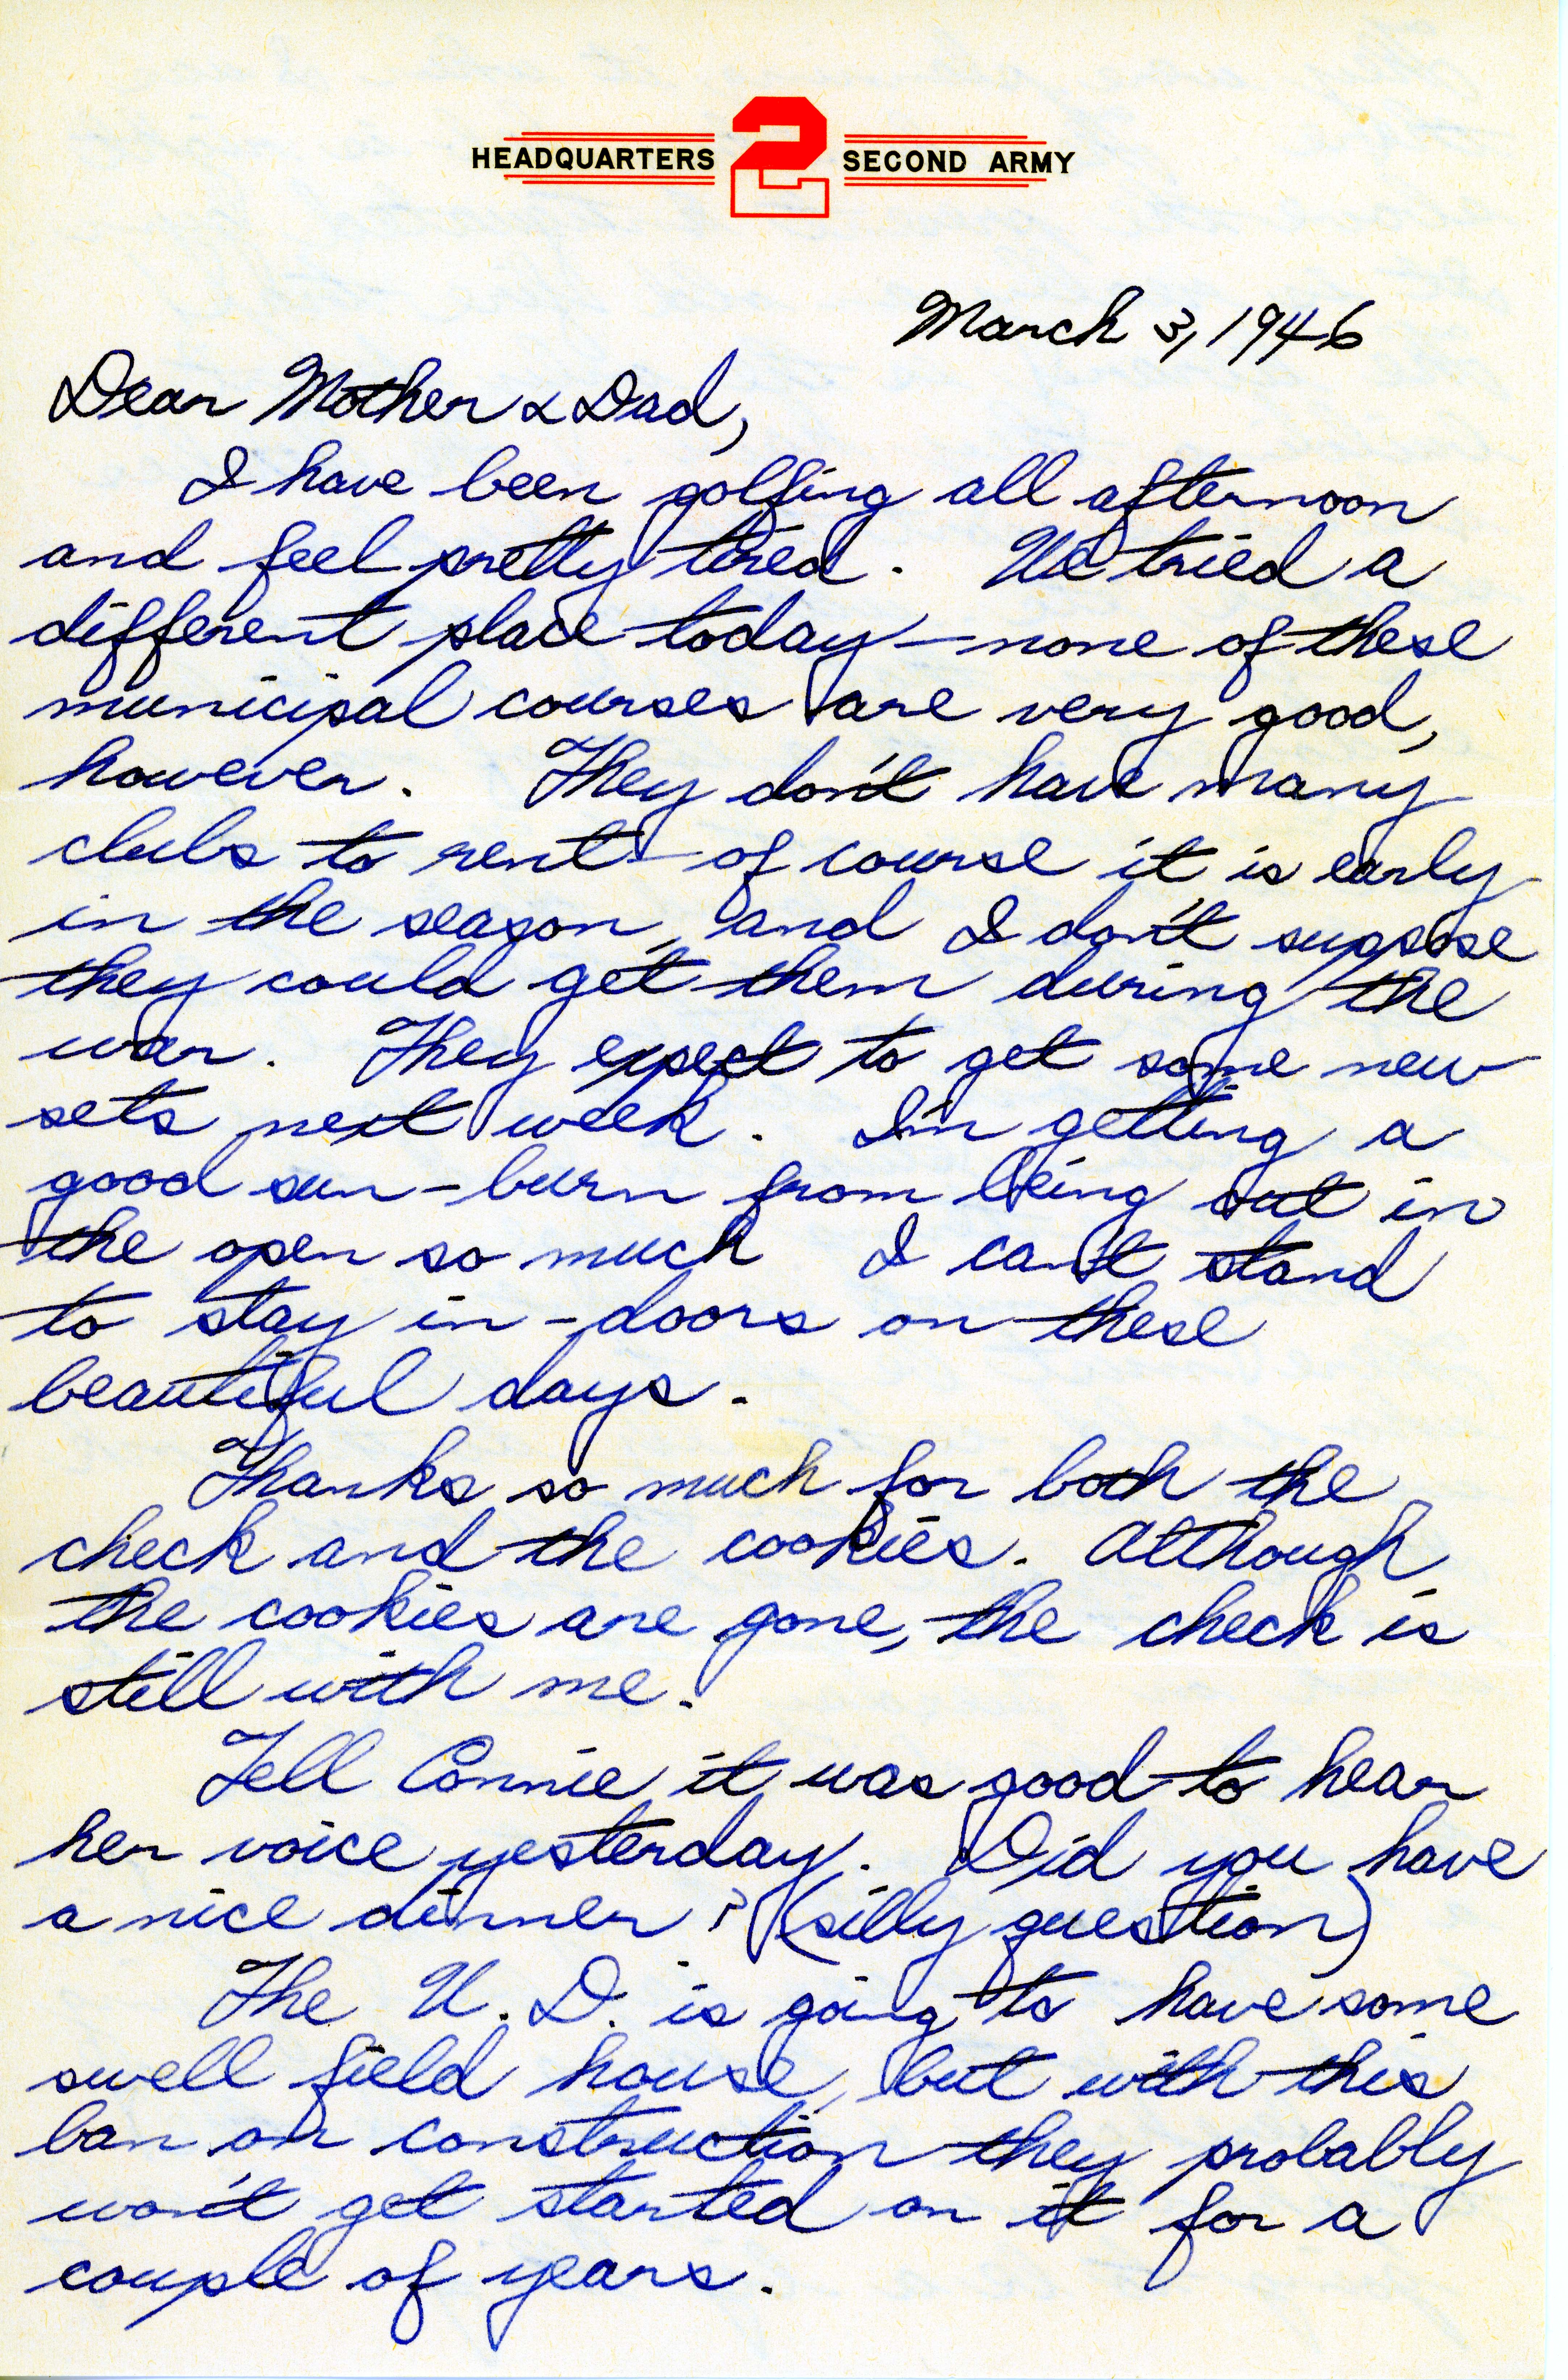 HEADQUARTERS 2 SECOND ARMY
March 3, 1946
Dear Mother & Dad,
I have been golfing all afternoon
and feel pretty tired. We tried a
different place today—none of these
municipal courses are very good,
however. They don't have many
clubs to rent—of course it is early
in the season, and I don't suppose
they could get them during the
war. They expect to get some new
sets next week. I'm getting a
good sun-burn from being out in
the open so much I can't stand
to stay in-doors on these
beautiful days.
Thanks so much for both the
check and the cookies. Although
the cookies are gone, the check is
still with me.
Tell Connie it was good to hear
her voice yesterday. Did you have
a nice dinner? (silly question)
The U. D. is going to have some
swell field house, but with this
ban on construction they probably
won't get started on it for a
couple of years.